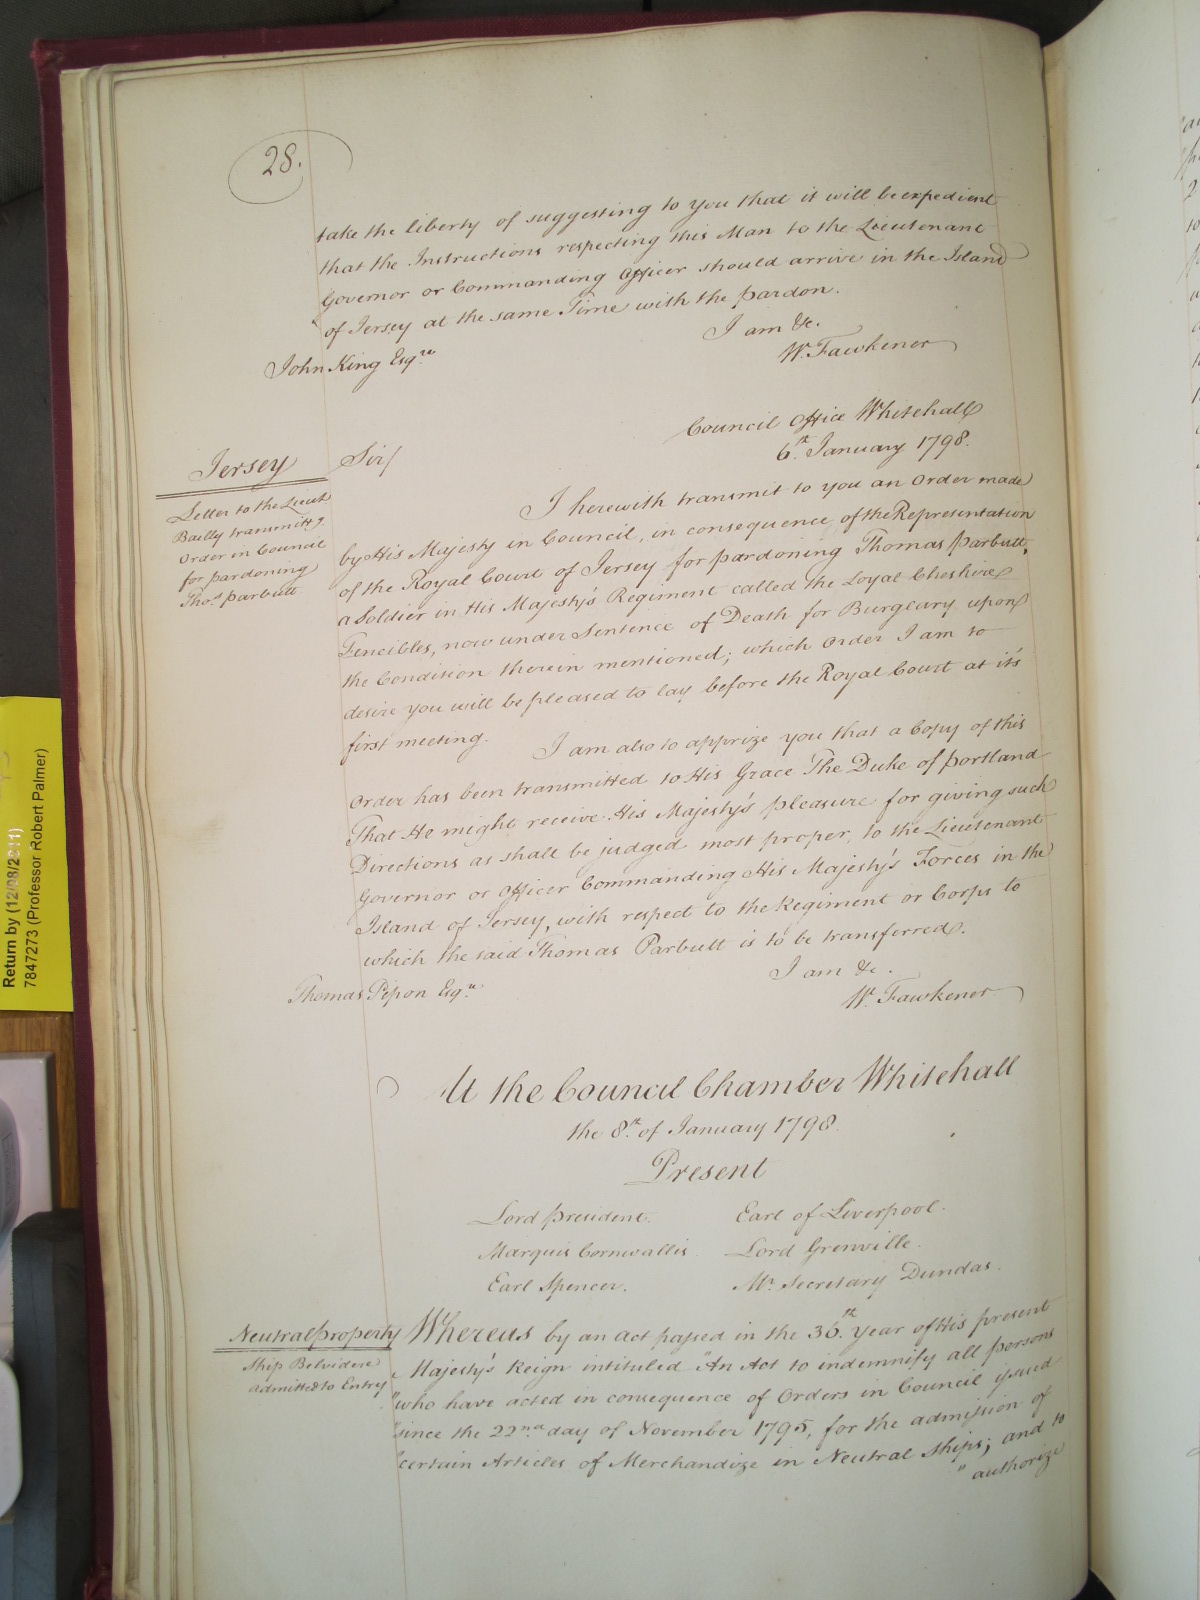 28.
take the liberty of suggesting to you that it will be expedient
that the Instructions respecting this Man to the Lieutenant
Governor or Commanding Officer should arrive in the Island
of Jersey at the same Time with the pardon.
I am &c.
W. Fawkener
John King Esqre
Council Office Whitehall
6th January 1798.
Jersey
Letter to the Lieut
Bailly transmittg
Order in Council
for pardoning
Thos. Parbutt
Sir/
I herewith transmit to you an Order made
by His Majesty in Council, in consequence of the Representation
of the Royal Court of Jersey for pardoning Thomas Parbutt,
a Soldier in His Majesty's Regiment called the Loyal Cheshire
Fencibles, now under Sentence of Death for Burglary upon
the Condition therein mentioned; which Order I am to
desire you will be pleased to lay before the Royal Court at it's
first meeting.
I am also to apprize you that a Copy of this
Order has been transmitted to His Grace The Duke of Portland
That He might receive His Majesty's pleasure for giving such
Directions as shall be judged most proper, to the Lieutenant
Governor or Officer Commanding His Majesty's Forces in the
Island of Jersey, with respect to the Regiment or Corps to
which the said Thomas Parbutt is to be transferred.
I am &c.
W. Fawkener
Thomas Pipon Esqre
At the Council Chamber Whitehall
the 8th of January 1798.
Present
Lord President. Earl of Liverpool.
Marquis Cornwallis. Lord Grenville.
Earl Spencer. Mr. Secretary Dundas.
Neutral property
Ship Belvidere
admitted to Entry
Whereas by an Act passed in the 36th Year of His present
Majesty's Reign intituled "An Act to indemnify all persons
"who have acted in consequence of Orders in Council issued
"since the 22nd day of November 1795, for the admission of
"certain Articles of Merchandize in Neutral Ships; and to
"authorize
Return by (12/08/2011)
7847273 (Professor Robert Palmer)